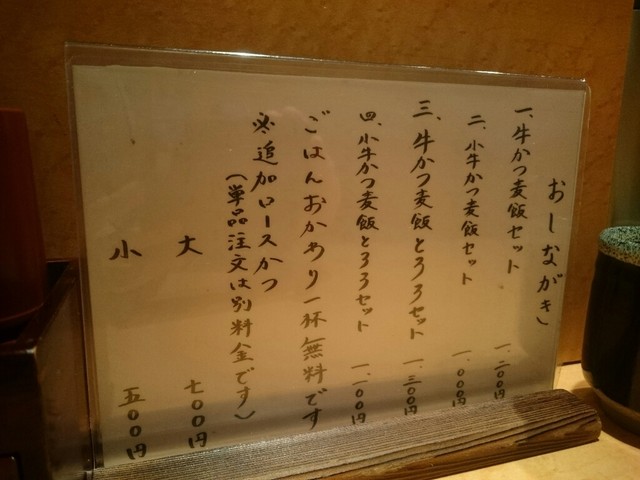 おしながき
一、牛かつ麦飯セット 一、二〇〇円
二、小牛かつ麦飯セット 一、〇〇〇円
三、牛かつ麦飯とろろセット 一、三〇〇円
四、小牛かつ麦飯とろろセット 一、一〇〇円
ごはんおかわり一杯無料です
※追加ロースかつ
(単品注文は別料金です)
大 七〇〇円
小 五〇〇円